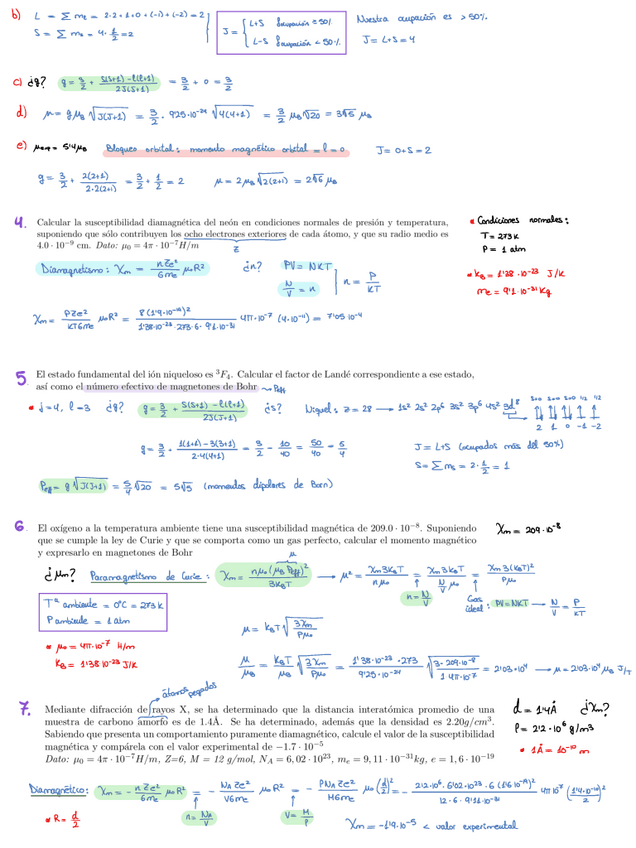 b) L = Σ me = 2·2+1+0+(-1)+(-2) = 2
S = Σ ms = 4·1/2 = 2
J = { L+S ocupación ≥ 50% L-S ocupación < 50%
Nuestra ocupación es > 50%
J = L+S = 4
c) ¿g? g = 3/2 + (S(S+1) - l(l+1))/(2J(J+1)) = 3/2 + 0 = 3/2
d) μ = gμB √J(J+1) = 3/2 · 9'25·10⁻²⁴ √4(4+1) = 3/2 μB √20 = 3√5 μB
e) μexp = 5'4μB Bloqueo orbital: momento magnético orbital = l = 0 J = 0+S = 2
g = 3/2 + 2(2+1)/(2·2(2+1)) = 3/2 + 1/2 = 2 μ = 2μB √2(2+1) = 2√6 μB
4. Calcular la susceptibilidad diamagnética del neón en condiciones normales de presión y temperatura,
suponiendo que sólo contribuyen los ocho electrones exteriores de cada átomo, y que su radio medio es
4.0 · 10⁻⁹ cm. Dato: μ₀ = 4π · 10⁻⁷ H/m
Z
• Condiciones normales:
T = 273 K
P = 1 atm
• kB = 1'38·10⁻²³ J/K
me = 9'1·10⁻³¹ Kg
Diamagnetismo: χm = nZe²/6me μ₀R² ¿n? PV = NKT N/V = n n = P/KT
χm = PZe²/KT6me μ₀R² = 8(1'9·10⁻¹⁹)²/(1'38·10⁻²³·273·6·9'1·10⁻³¹) 4π·10⁻⁷ (4·10⁻¹¹) = 7'05·10⁻⁴
5. El estado fundamental del ión niqueloso es ³F₄. Calcular el factor de Landé correspondiente a ese estado,
así como el número efectivo de magnetones de Bohr → Peff
• J=4, l=3 ¿g? g = 3/2 + (S(S+1) - l(l+1))/(2J(J+1)) ¿s? Niquel: z = 28 → 1s² 2s² 2p⁶ 3s² 3p⁶ 4s² 3d⁸
2 1 0 -1 -2
g = 3/2 + (1(1+1) - 3(3+1))/(2·4(4+1)) = 3/2 - 10/40 = 50/40 = 5/4
J = L+S (ocupados más del 50%)
S = Σ ms = 2·1/2 = 1
Peff = g √J(J+1) = 5/4 √20 = 5√5 (momentos dipolares de Born)
6. El oxígeno a la temperatura ambiente tiene una susceptibilidad magnética de 209.0 · 10⁻⁸. Suponiendo
que se cumple la ley de Curie y que se comporta como un gas perfecto, calcular el momento magnético
y expresarlo en magnetones de Bohr
χm = 209·10⁻⁸
μ
¿μm? Paramagnetismo de Curie: χm = nμ₀(μB Peff)²/3kBT → μ² = χm3kBT/nμ₀ = χm3kBT/(N/V μ₀) = χm3(kBT)²/Pμ₀
n = N/V
Gas ideal: PV=NKT → N/V = P/KT
Tª ambiente = 0ºC = 273 K
P ambiente = 1 atm
μ = kBT √(3χm/Pμ₀)
• μ₀ = 4π·10⁻⁷ H/m
kB = 1'38·10⁻²³ J/K
μ/μB = kBT/μB √(3χm/Pμ₀) = 1'38·10⁻²³·273/9'25·10⁻²⁴ √(3·209·10⁻⁸/1·4π·10⁻⁷) = 2'03·10⁴ → μ = 2'03·10⁴ μB J/T
átomos pegados
7. Mediante difracción de rayos X, se ha determinado que la distancia interatómica promedio de una
muestra de carbono amorfo es de 1.4Å. Se ha determinado, además que la densidad es 2.20g/cm³.
Sabiendo que presenta un comportamiento puramente diamagnético, calcule el valor de la susceptibilidad
magnética y compárela con el valor experimental de −1.7 · 10⁻⁵
Dato: μ₀ = 4π · 10⁻⁷ H/m, Z=6, M = 12 g/mol, NA = 6,02 · 10²³, me = 9,11 · 10⁻³¹kg, e = 1,6 · 10⁻¹⁹
d = 1'4Å ¿χm?
ρ = 2'2·10⁶ g/m³
• 1Å = 10⁻¹⁰ m
Diamagnético: χm = - nZe²/6me μ₀R² = - NA Ze²/V6me μ₀R² = - ρNA Ze²/M6me μ₀(d/2)² = - 2'2·10⁶·6'02·10²³·6(1'6·10⁻¹⁹)²/12·6·9'11·10⁻³¹ 4π·10⁻⁷ (1'4·10⁻¹⁰/2)²
• R = d/2
n = NA/V
V = M/ρ
χm = -1'9·10⁻⁵ < valor experimental